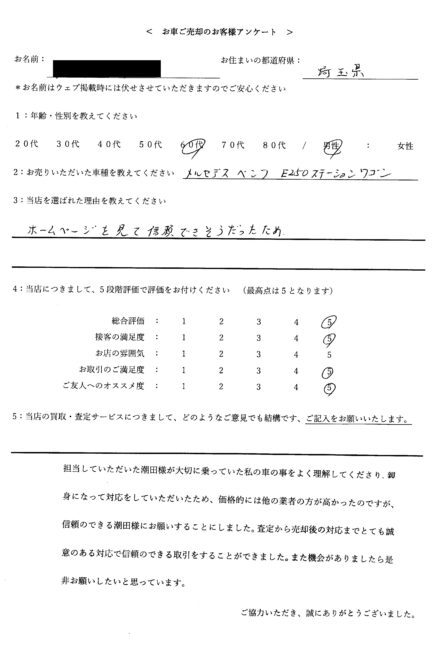 ＜ お車ご売却のお客様アンケート ＞
お名前： お住まいの都道府県： 埼玉県
＊お名前はウェブ掲載時には伏せさせていただきますのでご安心ください
1：年齢・性別を教えてください
20代 30代 40代 50代 60代 70代 80代 / 男性 ： 女性
2：お売りいただいた車種を教えてください メルセデス ベンツ E250ステーションワゴン
3：当店を選ばれた理由を教えてください
ホームページを見て信頼できそうだったため
4：当店につきまして、5段階評価で評価をお付けください （最高点は5となります）
総合評価 ： 1 2 3 4 5
接客の満足度 ： 1 2 3 4 5
お店の雰囲気 ： 1 2 3 4 5
お取引のご満足度 ： 1 2 3 4 5
ご友人へのオススメ度 ： 1 2 3 4 5
5：当店の買取・査定サービスにつきまして、どのようなご意見でも結構です、ご記入をお願いいたします。
担当していただいた潮田様が大切に乗っていた私の車の事をよく理解してくださり、親
身になって対応をしていただいたため、価格的には他の業者の方が高かったのですが、
信頼のできる潮田様にお願いすることにしました。査定から売却後の対応までとても誠
意のある対応で信頼のできる取引をすることができました。また機会がありましたら是
非お願いしたいと思っています。
ご協力いただき、誠にありがとうございました。